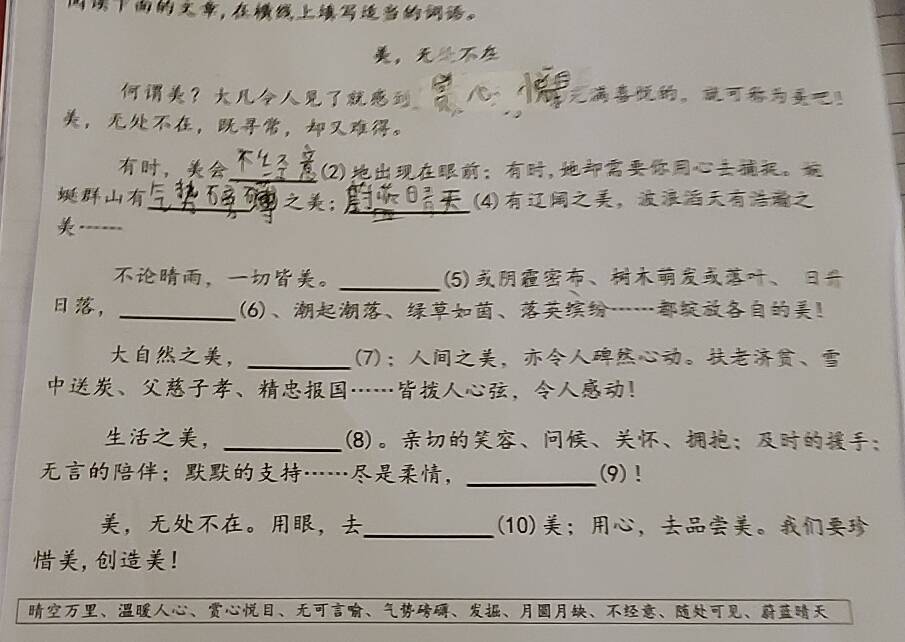 阅读下面的文章,在横线上填写适当的词语。
美，无处不在
何谓美？大凡令人见了就感到赏心悦目、充满喜悦的，就可称为美吧！
美，无处不在，既寻常，却又难得。
有时，美会不经意(2)地出现在眼前；有时,她却需要你用心去捕捉。蜿
蜒群山有气势磅礴之美；蔚蓝晴天(4)有辽阔之美，波浪滔天有浩瀚之
美……
不论晴雨，一切皆美。________(5)或阴霾密布、树木萌发或落叶、日升
日落，________(6)、潮起潮落、绿草如茵、落英缤纷……都绽放各自的美！
大自然之美，________(7)；人间之美，亦令人砰然心动。扶老济贫、雪
中送炭、父慈子孝、精忠报国……皆拨人心弦，令人感动！
生活之美，________(8)。亲切的笑容、问候、关怀、拥抱；及时的援手；
无言的陪伴；默默的支持……尽是柔情，________(9)！
美，无处不在。用眼，去________(10)美；用心，去品尝美。我们要珍
惜美,创造美！
晴空万里、温暖人心、赏心悦目、无可言喻、气势磅礴、发掘、月圆月缺、不经意、随处可见、蔚蓝晴天